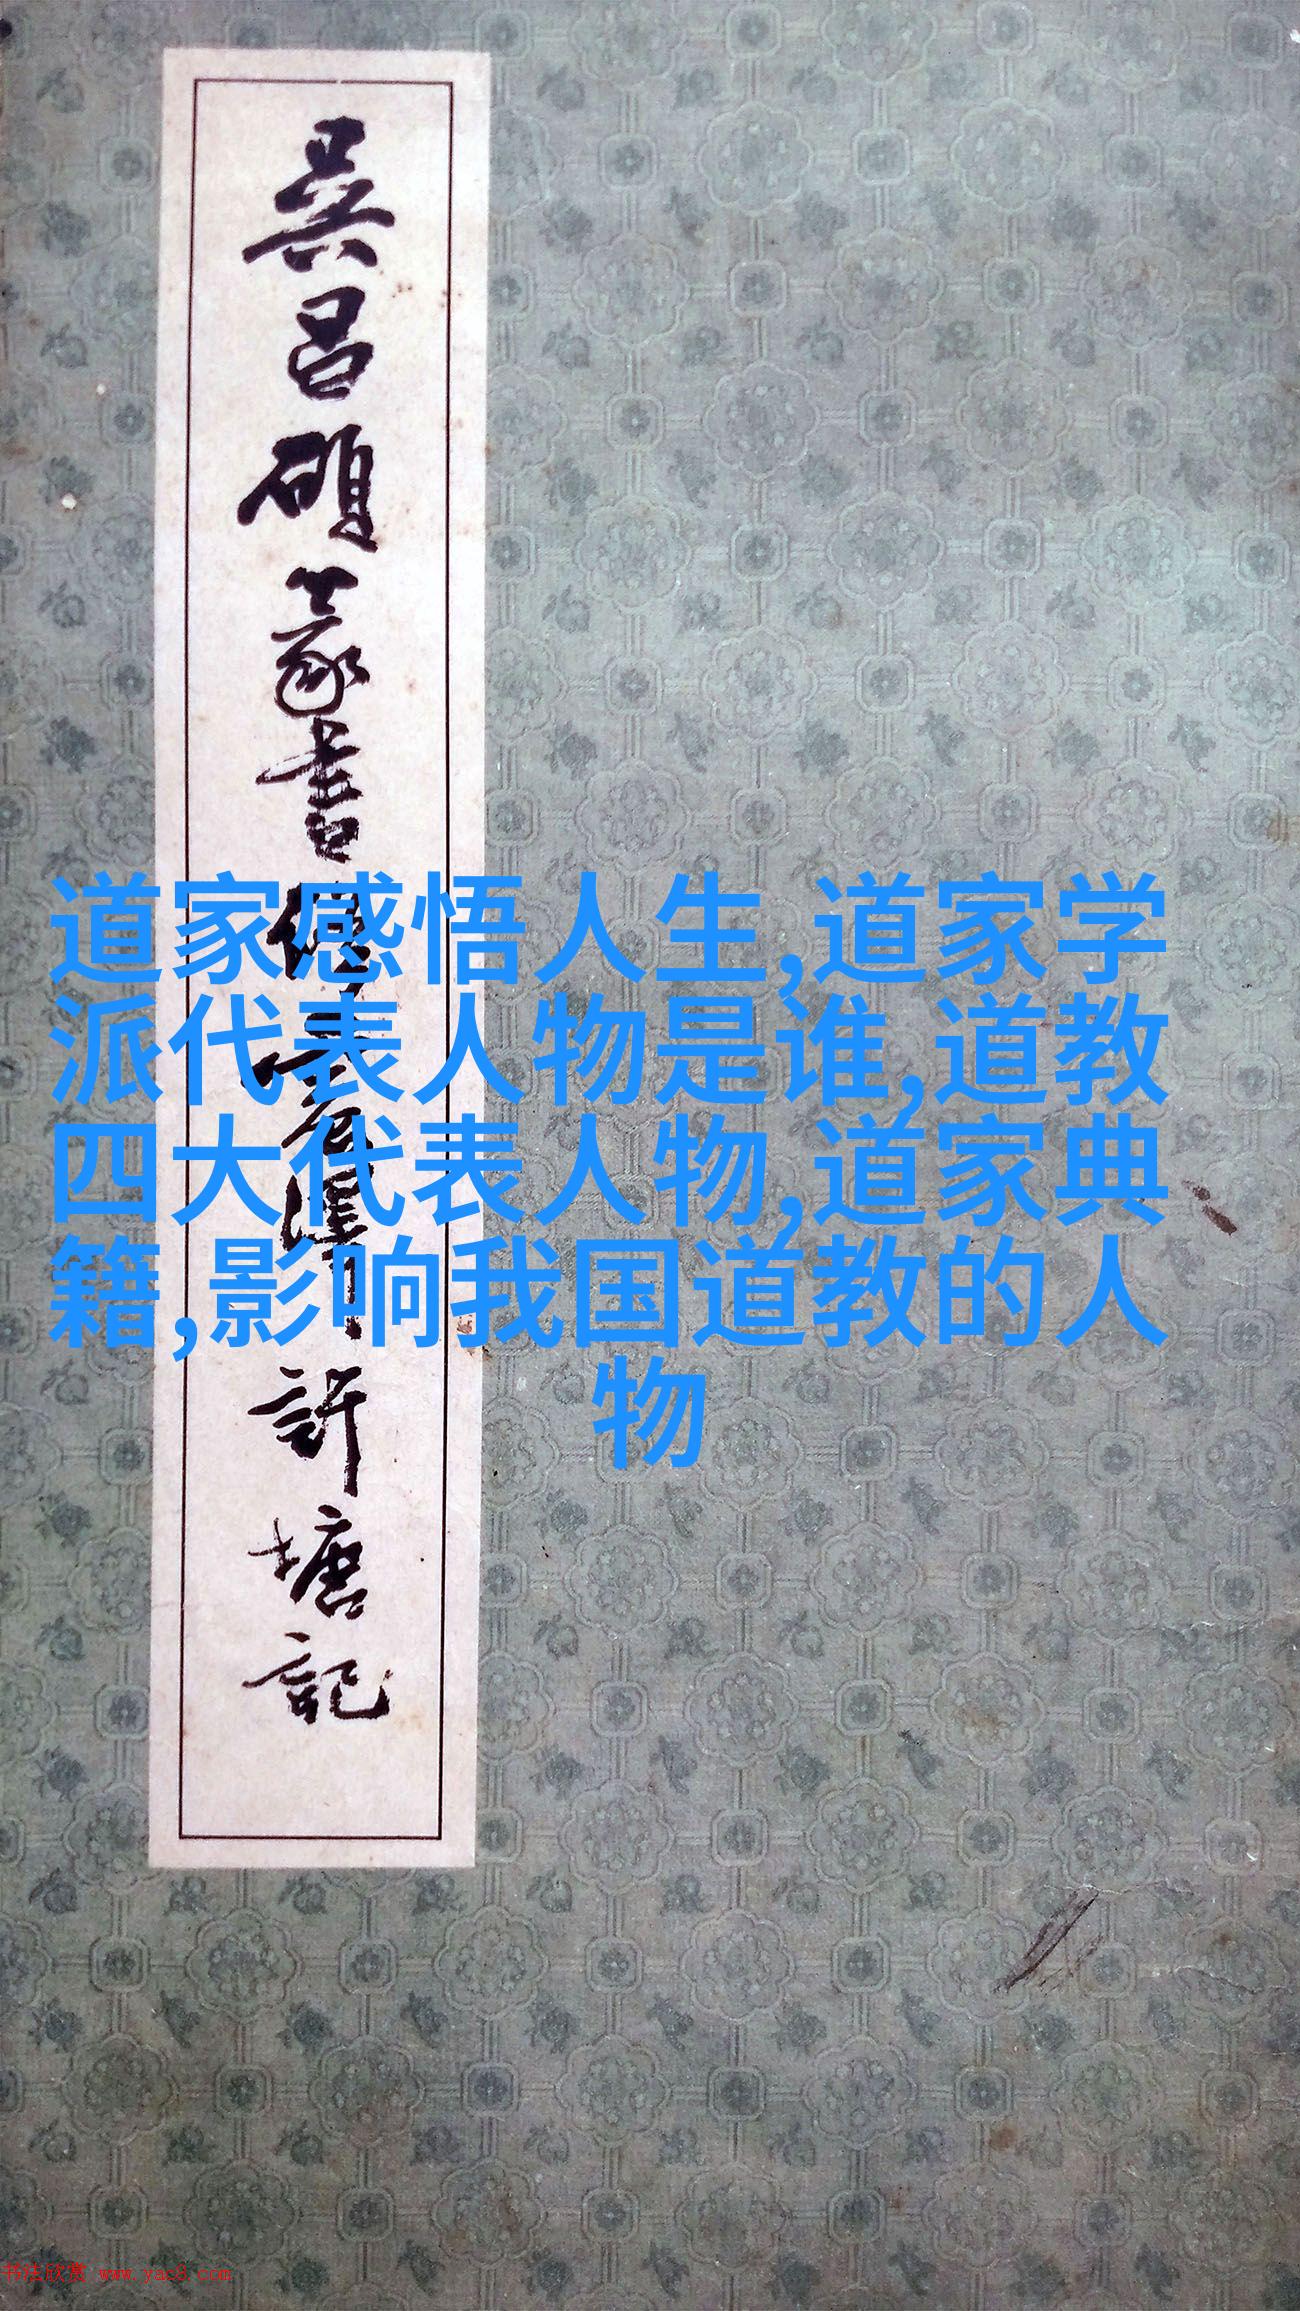 吳昌碩篆書修震澤許塘記
道家感悟人生,道家学
派代表人物是谁,道教
四大代表人物,道家典
籍,影响我国道教的人
物
书法欣赏 www.yac8.com